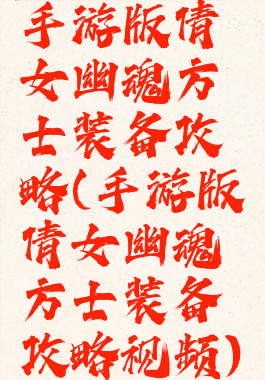 手游版倩
女幽魂方
士装备攻
略(手游版
倩女幽魂
方士装备
攻略视频)